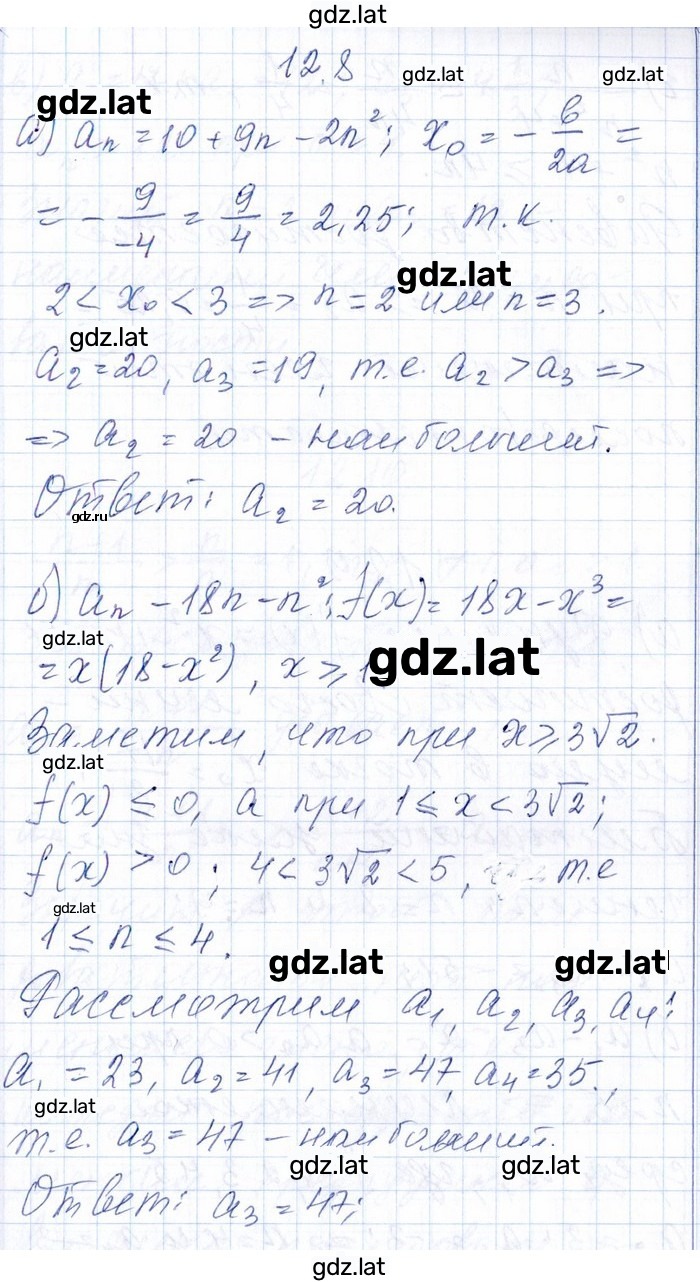 gdz.lat
12.8
gdz.lat gdz.lat
gdz.lat
а) aₙ = 10 + 9n − 2n²; x₀ = − b/2a =
= − 9/−4 = 9/4 = 2,25; т.к.
gdz.lat
2 < x₀ < 3 => n = 2 или n = 3.
gdz.lat
a₂ = 20, a₃ = 19, т.е. a₂ > a₃ =>
=> a₂ = 20 – наибольший.
Ответ: a₂ = 20.
gdz.ru
б) aₙ − 18n − n²; f(x) = 18x − x³ =
gdz.lat gdz.lat
= x(18 − x²), x ⩾ 1
Заметим, что при x ⩾ 3√2.
gdz.lat
f(x) ≤ 0, а при 1 ≤ x < 3√2;
f(x) > 0; 4 < 3√2 < 5, т.е
gdz.lat
1 ≤ n ≤ 4.
gdz.lat gdz.lat
Рассмотрим a₁, a₂, a₃, a₄:
a₁ = 23, a₂ = 41, a₃ = 47, a₄ = 35.,
gdz.lat
т.е. a₃ = 47 – наибольший.
gdz.lat gdz.lat
Ответ: a₃ = 47;
gdz.lat